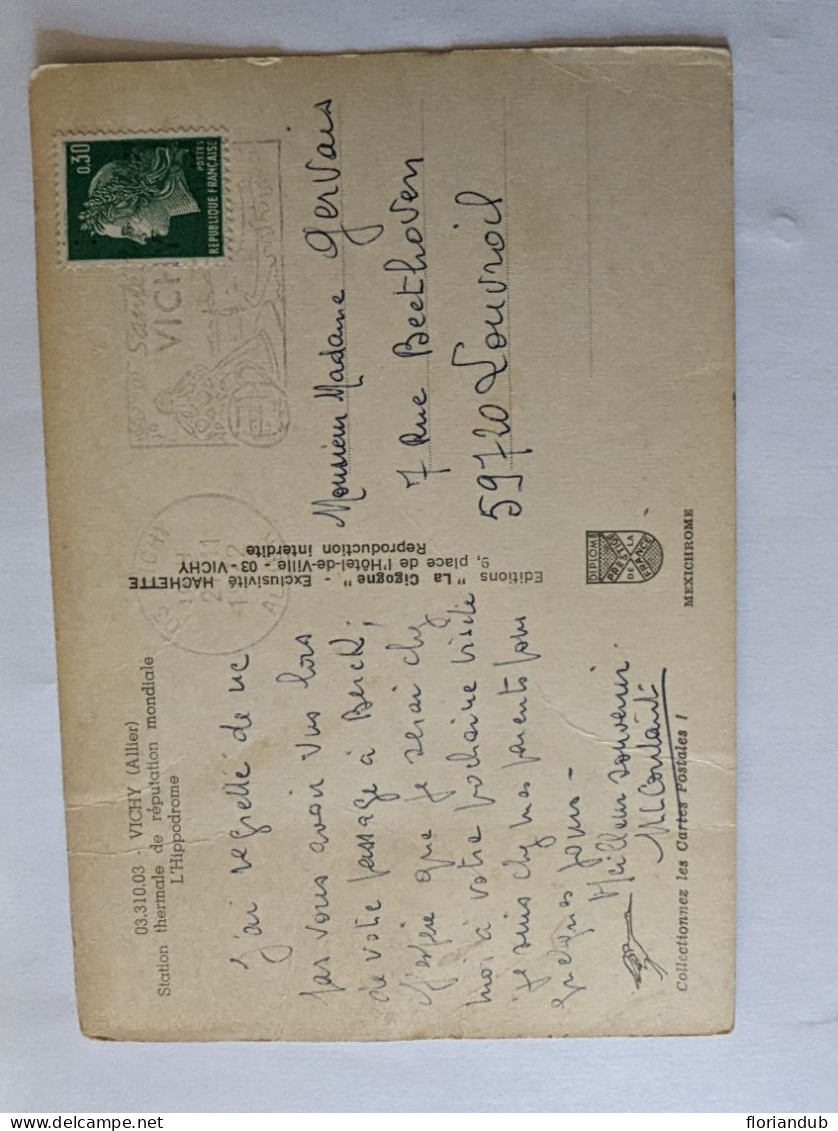 03.310.03 - VICHY (Allier)
Station thermale de réputation mondiale
L'Hippodrome
J'ai regretté de ne
pas vous avoir vus lors
de votre passage à Berck ;
J'espère que je serai chez
moi à votre prochaine visite
je suis chez mes parents pour
quelques jours -
Meilleur souvenir.
Collectionnez les Cartes Postales !
Editions " La Cigogne " - Exclusivité HACHETTE
9, place de l'Hôtel-de-Ville - 03 - VICHY
Reproduction interdite
VICHY
0,30
POSTES
REPUBLIQUE FRANÇAISE
Monsieur Madame Gervais
7 Rue Beethoven
59720 Louvroil
DIPLOME
PRESTIGE
DE LA
FRANCE
MEXICHROME
floriandub